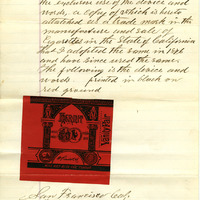 the exclusive use of the device and
words, a copy of which is hereto
attatched as a trade mark in the
manufacture and sale of
Cigarettes in the State of California
that I adopted the same in 1876
and have since used the same.
The following is the device and
words printed in black on
red ground
Vanity Fair
San Francisco Cal.